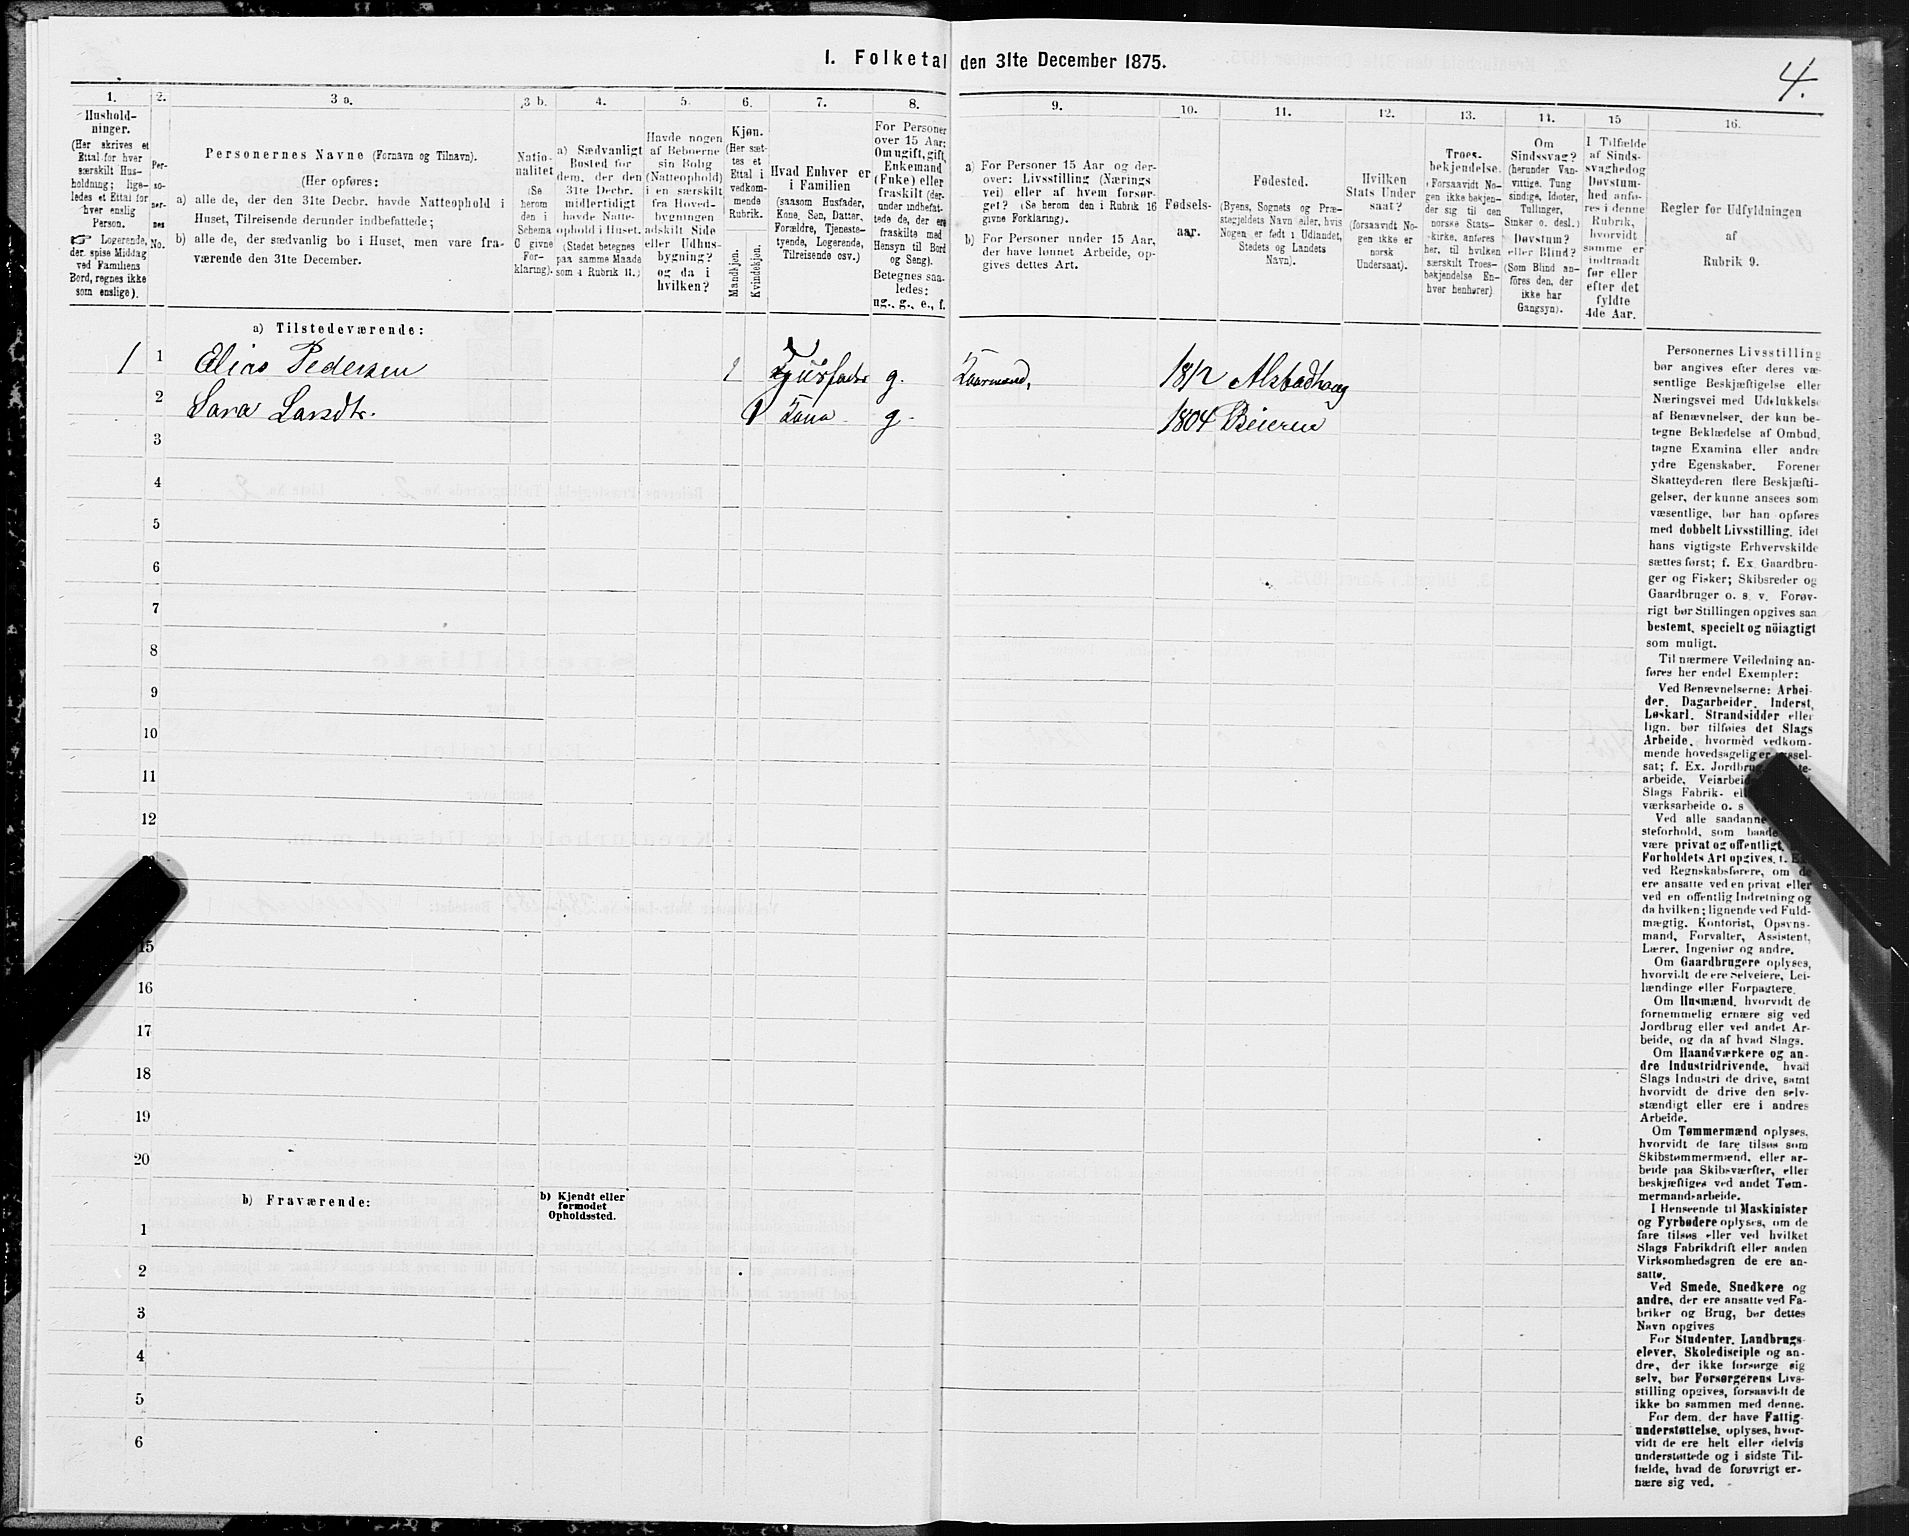 I. Folketal den 31te December 1875.
4.
1.
2.
3 a.
3 b.
4.
5.
6.
7.
8.
9.
10.
11.
12.
13.
14.
15
16.
Hushold-
ninger.
(Her skrives et
Ettal for hver
særskilt Hus-
holdning; lige-
ledes et Ettal for
hver enslig
Person.
☞ Logerende,
der spise Middag
ved Familiens
Bord, regnes ikke
som enslige).
Per-
so-
ner-
nes
No.
Personernes Navne (Fornavn og Tilnavn).
(Her opføres:
a) alle de, der den 31te Decbr. havde Natteophold i
Huset, Tilreisende derunder indbefattede;
b) alle de, der sædvanlig bo i Huset, men vare fra-
værende den 31te December.
Natio-
nalitet
(Se
herom
den i
Schema
C givne
For-
klaring).
a) Sædvanligt
Bosted for
dem, der den
31te Decbr.
midlertidigt
havde Natte-
ophold i Huset.
(Stedet betegnes
paa samme Maade
som i Rubrik 11.)
Havde nogen
af Beboerne
sin Bolig
(Natteophold)
i en særskilt
fra Hoved-
bygningen
adskilt Side
eller Udhus-
bygning?
og da i
hvilken?
Kjøn.
(Her sæt-
tes et
Ettal i
vedkom-
mende
Rubrik.
Mandkjøn.
Kvindekjøn.
Hvad Enhver er
i Familien
(saasom Husfader,
Kone, Søn, Datter,
Forældre, Tjeneste-
tyende, Logerende,
Tilreisende osv.)
For Personer
over 15 Aar:
Om ugift, gift,
Enkemand
(Enke) eller
fraskilt (der-
under indbefat-
tede de, der ere
fraskilte med
Hensyn til Bord
og Seng).
Betegnes saa-
ledes:
ug., g., e., f.
a) For Personer 15 Aar og der-
over: Livsstilling (Nærings
vei) eller af hvem forsør-
get? (Se herom den i Rubrik 16
givne Forklaring).
b) For Personer under 15 Aar,
der have lønnet Arbeide, op-
gives dettes Art.
Fødsels-
aar.
Fødested.
(Byens, Sognets og Præ-
stegjeldets Navn eller, hvis
Nogen er født i Udlandet,
Stedets og Landets
Navn).
Hvilken
Stats Under
saat?
(forsaavidt No-
gen ikke er
norsk
Undersaat).
Troes-
bekjendelse.
(Forsaavidt No-
gen ikke bekjen-
der sig til den
norske Stats-
kirke, anføres
her, til hvilken
særskilt Troes-
bekjendelse En-
hver henhører)
Om
Sindssvag?
(herunder Van-
vittige, Tung
sindige, Idioter,
Tullinger,
Sinker o. desl.)
Døvstum?
eller Blind?
(Som Blind an-
føres den, der
ikke har
Gangsyn).
I Tilfælde
af Sinds-
svaghed og
Døvstum-
hed anfø-
res i denne
Rubrik,
hvorvidt
samme er
indtraadt
før eller
efter det
fyldte
4de Aar.
Regler for Udfyldningen
af
Rubrik 9.
a) Tilstedeværende:
1 1 Elias Pedersen 1 Husfader g. Kaarmand, 1812 Alstadhaug
2 Sara Larsdtr. 1 Kona g. 1804 Beieren
3
4
5
6
7
8
9
10
11
12
15
16
17
18
19
20
b) Fraværende:
b) Kjendt eller
formodet
Opholdssted.
1
2
3
4
5
6
Personernes Livsstilling
bør angives efter deres væ-
sentlige Beskjæftigelse eller
Næringsvei med Udelukkelse
af Benævnelser, der kun be-
tegne Beklædelse af Ombud,
tagne Examina eller andre
ydre Egenskaber. Forener
Skatteyderen flere Beskjæfti-
gelser, der kunne ansees som
væsentlige, bør han opføres
med dobbelt Livsstilling, idet
hans vigtigste Erhvervskilde
sættes først; f. Ex. Gaardbru-
ger og Fisker; Skibsreder og
Gaardbruger o. s. v. Forøv-
rigt bør Stillingen opgives saa
bestemt, specielt og nöiagtigt
som muligt.
Til nærmere Veiledning an-
føres her endel Exempler:
Ved Benævnelserne: Arbei-
der, Dagarbeider, Inderst,
Løskarl, Strandsidder eller
lign. bør tilføies det Slags
Arbeide, hvormed vedkom-
mende hovedsagelig er
sat; f. Ex. Jordbrug,
arbeide, Veiarbeide,
Slags Fabrik-
værksarbeide o. s
Ved alle saadanne
steforhold, som baade
være privat og offentligt,
Forholdets Art opgives, f. Ex.
ved Regnskabsførere, om de
ere ansatte ved en privat eller
ved en offentlig Indretning og
da hvilken; lignende ved Fuld-
mægtig, Kontorist, Opsyns-
mand, Forvalter, Assistent,
Lærer, Ingeniør og andre.
Om Gaardbrugere oplyses,
hvorvidt de ere Selveiere, Lei-
lændinge eller Forpagtere.
Om Husmænd, hvorvidt de
fornemmelig ernære sig ved
Jordbrug eller ved andet Ar-
beide, og da af hvad Slags.
Om Haandværkere og an-
dre Industridrivende, hvad
Slags Industri de drive, samt
hvorvidt de drive den selv-
stændigt eller ere i andres
Arbeide.
Om Tømmermænd oplyses,
hvorvidt de fare tilsøs som
Skibstømmermænd, eller ar-
beide paa Skibsværfter, eller
beskjæftiges ved andet Tøm-
mermandsarbeide.
I Henseende til Maskinister
og Fyrbødere oplyses, om de
fare tilsøs eller ved hvilket
Slags Fabrikdrift eller anden
Virksomhedsgren de ere an-
satte.
Ved Smede, Snedkere og
andre, der ere ansatte ved Fa-
briker og Brug, bør dettes
Navn opgives
For Studenter, Landbrugs-
elever, Skoledisciple og an-
dre, der ikke forsørge sig
selv, bør Forsørgerens Livs-
stilling opgives, forsaavidt de
ikke bo sammen med denne.
For dem, der have Fattig-
understøttelse, oplyses, hvor-
vidt de ere helt eller delvis
understøttede og i sidste Til-
fælde, hvad de forøvrigt er-
nære sig ved.